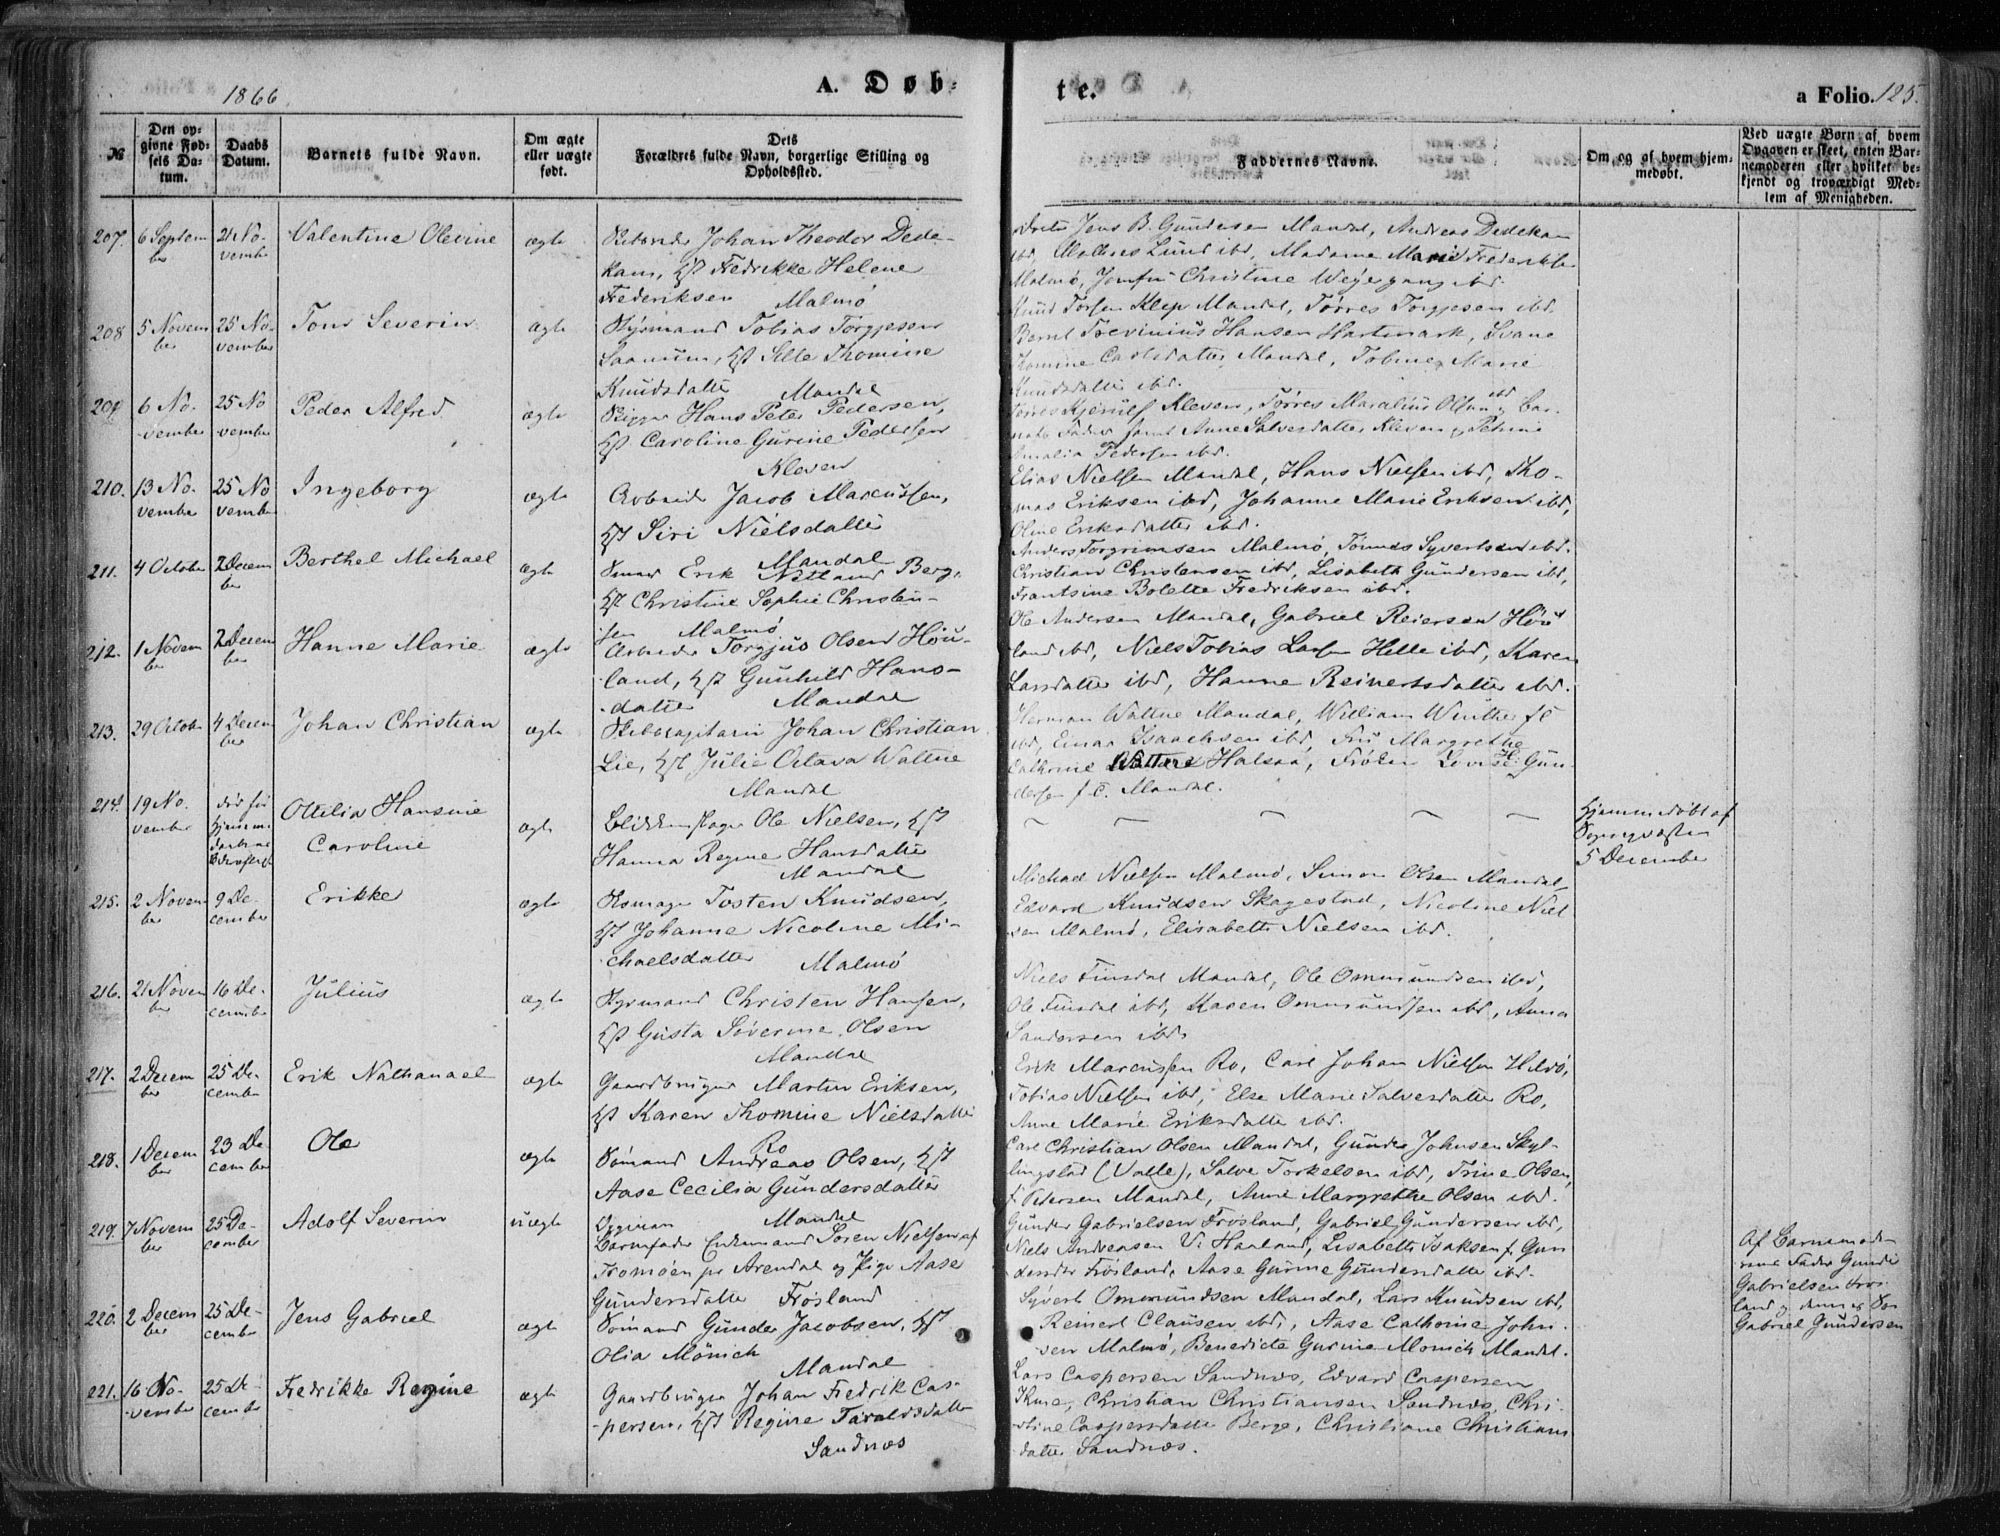 1866
A. Døb-
te.
a Folio. 125.
№
Den op-
givne Fød-
sels Da-
tum.
Daabs
Datum.
Barnets fulde Navn.
Om ægte
eller uægte
født.
Dets
Forældres fulde Navn, borgerlige Stilling og
Opholdssted.
Faddernes Navne.
Om og af hvem hjem-
medøbt.
Ved uægte Børn, af hvem
Opgaven er skeet, enten Bar-
nemoderen eller hvilket be-
kjendt og troværdigt Med-
lem af Menigheden.
207. 6 Septem
ber
21 No-
vember
Valentine Olevine
ægte
Johan Theodor Dede-
kam, Fredrikke Helene
Frederiksen Malmø
Jens B. Gundersen Mandal, Andreas Dedekam
ibd, Lund ibd, Madame Marie Frederiksen
Malmø, Jomfru Christine Weyergang ibd.
208 5 Novem
ber
25 No-
vember
Tom Severin
ægte
Tobias Torgjesen
Saanum, Thomine
Knudsdatter Mandal
Knud Torsen Klep Mandal, Tørres Torgjesen ibd.
Bernt Hansen Hartmark, Svane
Thomine Carlsdatter Mandal, Tobine Marie
Knudsdatter ibd.
209 6 No-
vember
25 No
vember
Peder Alfred
ægte
Rigger Hans Peter Pedersen,
Caroline Gurine Pedersen
Kleven
Tørres Kjerulf Kleven, Tørres Olsen ibd og Bar-
nets Fader samt Anne Salvesdatter Kleven og Petrine
Amalia Pedersen ibd.
210. 13 No-
vember
25 No
vember
Ingeborg
ægte
Arbeider Jacob Marcussen,
Siri Nielsdatter
Mandal
Elias Nielsen Mandal, Hans Nielsen ibd, Tho-
mas Eriksen ibd, Johanne Marie Eriksen ibd,
Oline Eriksdatter ibd.
211. 4 October
2 Decem
ber
Berthel Michael
ægte
Smed Erik Natland Berg,
Christine Sophie Christen-
sen Malmø
Anders Torgrimsen Malmø, Tønnes Syvertsen ibd.
Christian Christensen ibd, Lisabeth Gundersen ibd,
Frantsine Bolette Fredriksen ibd.
212. 1 Novem
ber
2 Decem
ber
Hanne Marie
ægte
Arbeider Torgjus Olsen Høu-
land, Gunhild Hans-
datter Mandal
Ole Andersen Mandal, Gabriel Reiersen Høu
land ibd, Niels Tobias Larsen Helle ibd, Karen
Larsdatter ibd, Hanne Reinertsdatter ibd.
213. 29 October
4 Decem
ber
Johan Christian
ægte
Skibscapitain Johan Christian
Lie, Julie Octava Wattne
Mandal
Herman Wattne Mandal, William Winther f C
ibd, Einar Isaachsen ibd Fru Margrethe
Cathrine Halsaa, Frøken Lovise H. Gun-
dersen f C. Mandal.
214. 19 No-
vember
død før
Ottilia Hansine
Caroline
ægte
Blikkenslager Ole Nielsen,
Hanna Regine Hansdatter
Mandal
Hjemmedøbt af
Sognepræsten
5 December
215. 2 Novem
ber
9 De-
cember
Erikke
ægte
Tosten Knudsen,
Johanne Nicoline Mi-
chaelsdatter Malmø
Michael Nielsen Malmø, Simon Olsen Mandal,
Edvard Knudsen Skagestad, Nicoline Niel
sen Malmø, Elisabeth Nielsen ibd.
216. 21 Novem
ber
16 De-
cember
Julius
ægte
Styrmand Christen Hansen,
Gusta Severine Olsen
Mandal
Niels Finsdal Mandal, Ole Ommundsen ibd,
Ole Finsdal ibd, Karen Ommundsen ibd, Anna
Sandersen ibd
217. 2 Decem
ber
25 De-
cember
Erik Nathanael
ægte
Gaardbruger Martin Eriksen,
Karen Thomine Nielsdatter
Ro
Erik Marcussen Ro, Carl Johan Nielsen Hilø,
Tobias Nielsen ibd, Else Marie Salvesdatter Ro,
Anne Marie Eriksdatter ibd.
218. 1 Decem
ber
23 De
cember
Ole
ægte
Sømand Andreas Olsen,
Aase Cecilia Gundersdatter
Mandal
Carl Christian Olsen Mandal, Gunder Johnsen Skyl-
lingstad (Valle), Salve Torkelsen ibd, Trine Olsen,
f. Petersen Mandal, Anne Margrethe Olsen ibd.
219. 7 Novem
ber
25 De-
cember
Adolf Severin
uægte
Barnefader Enkemand Søren Nielsen af
Tromøen pr Arendal og Pige Aase
Gundersdatter Frøsland
Gunder Gabrielsen Frøsland, Gabriel Gundersen ibd,
Niels Andreasen Haaland, Lisabeth Isaksen f. Gun
dersdtr Frøsland, Aase Gurine Gundersdatter ibd.
Af Barnemode-
rens Fader Gunder
Gabrielsen Frøs-
land og dennes Søn
Gabriel Gundersen
220. 2 Decem
ber
25 De-
cember
Jens Gabriel
ægte
Sømand Gunder Jacobsen,
Olia Mönich
Mandal
Syvert Ommundsen Mandal, Lars Knudsen ibd,
Reinert Clausen ibd, Aase Cathrine John-
sen Malmø, Benedicte Gurine Mönich Mandal.
221. 16 No-
vember
25 De-
cember
Fredrikke Regine
ægte
Gaardbruger Johan Fredrik Cas-
persen, Regine Taraldsdatter
Sandnæs
Lars Caspersen Sandnæs, Edvard Caspersen
Ime, Christian Christiansen Sandnæs, Chri-
stine Caspersdatter Berge, Christiane Christians
datter Sandnæs.